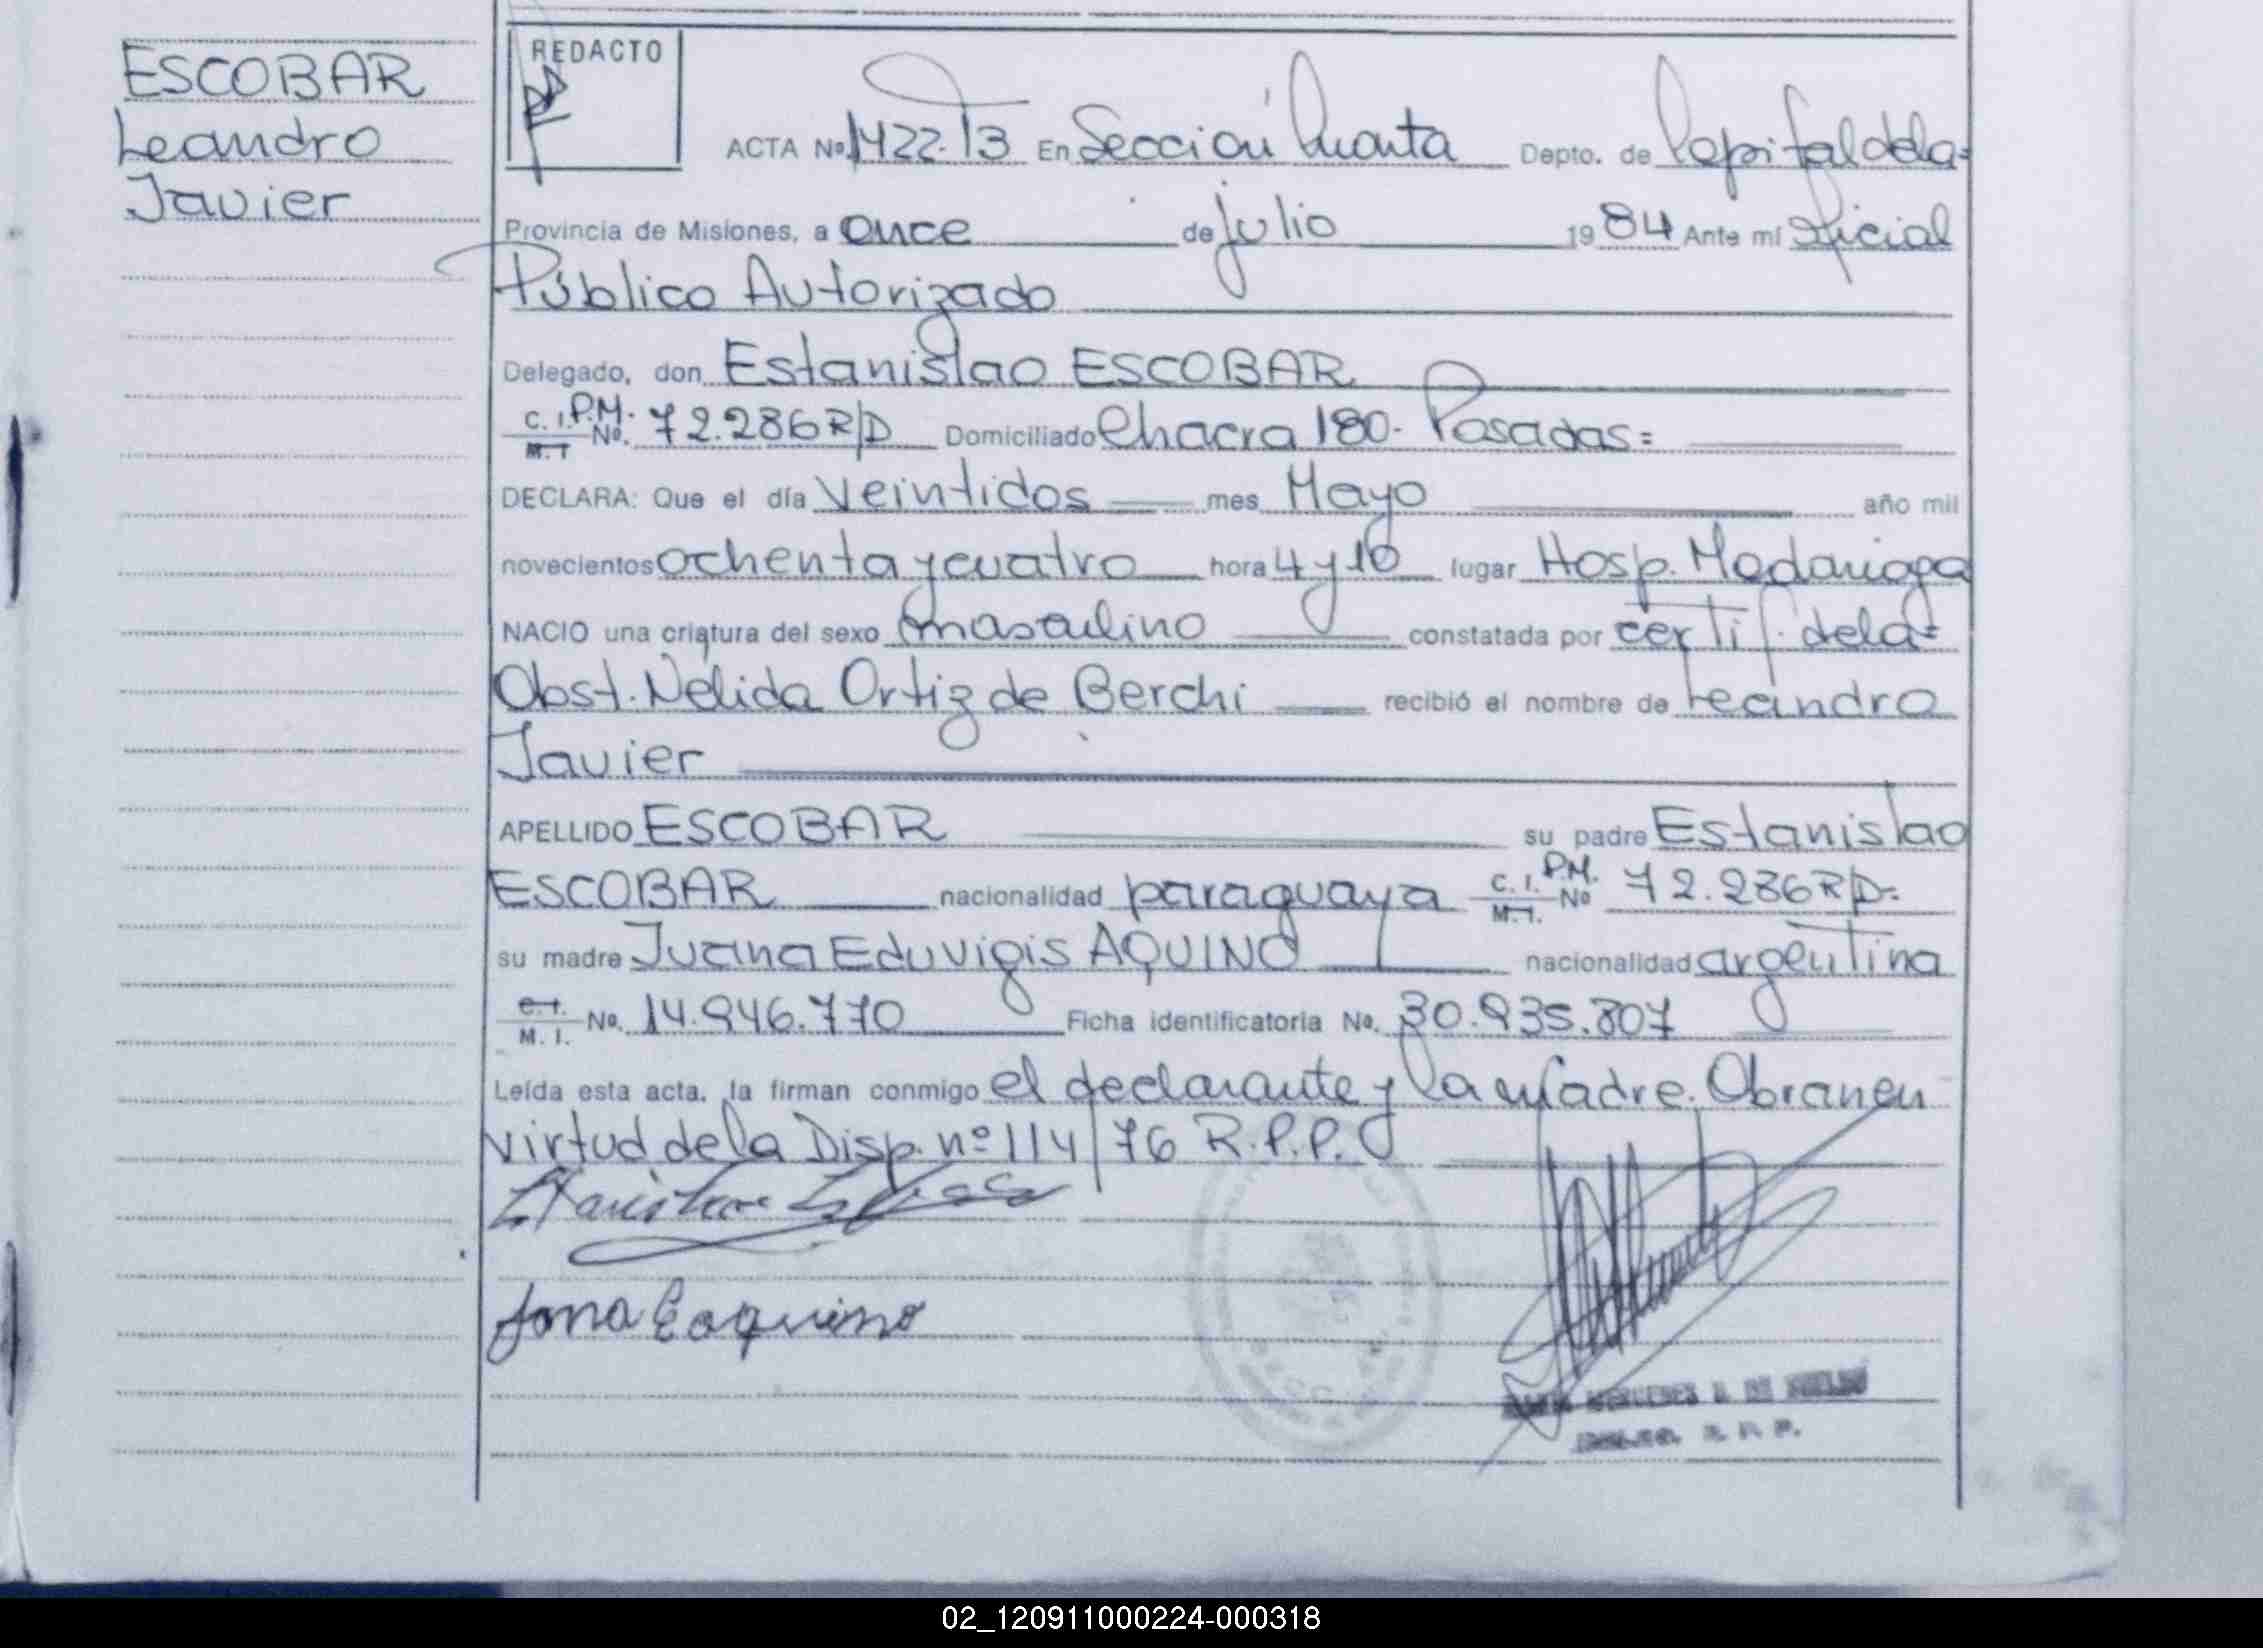 ESCOBAR
Leandro
Javier
REDACTO
ACTA Nº 1422.T3 En Sección Cuarta Depto. de Capital dela=
Provincia de Misiones, a once de julio 1984 Ante mí Oficial
Público Autorizado
Delegado, don Estanislao ESCOBAR
C. I. P.M. M. I Nº. 72.286 R/D Domiciliado Chacra 180. Posadas=
DECLARA: Que el día veintidos mes Mayo año mil
novecientos ochenta y cuatro hora 4 y 10 lugar Hosp. Madariaga
NACIO una criatura del sexo masculino constatada por certif. dela=
Obst. Nelida Ortiz de Berchi recibió el nombre de Leandro
Javier
APELLIDO ESCOBAR su padre Estanislao
ESCOBAR nacionalidad paraguaya C. I. P.M. M. I. Nº 72.286 R/D=
su madre Juana Eduvigis AQUINO nacionalidad argentina
C. I. M. I. Nº. 14.946.770 Ficha identificatoria Nº. 30.935.807
Leída esta acta, la firman conmigo el declarante y la madre. Obran en
virtud de la Disp. nº 114/76 R.P.P.
Estanislao Escobar
MERCEDES
R. P. P.
02_120911000224-000318